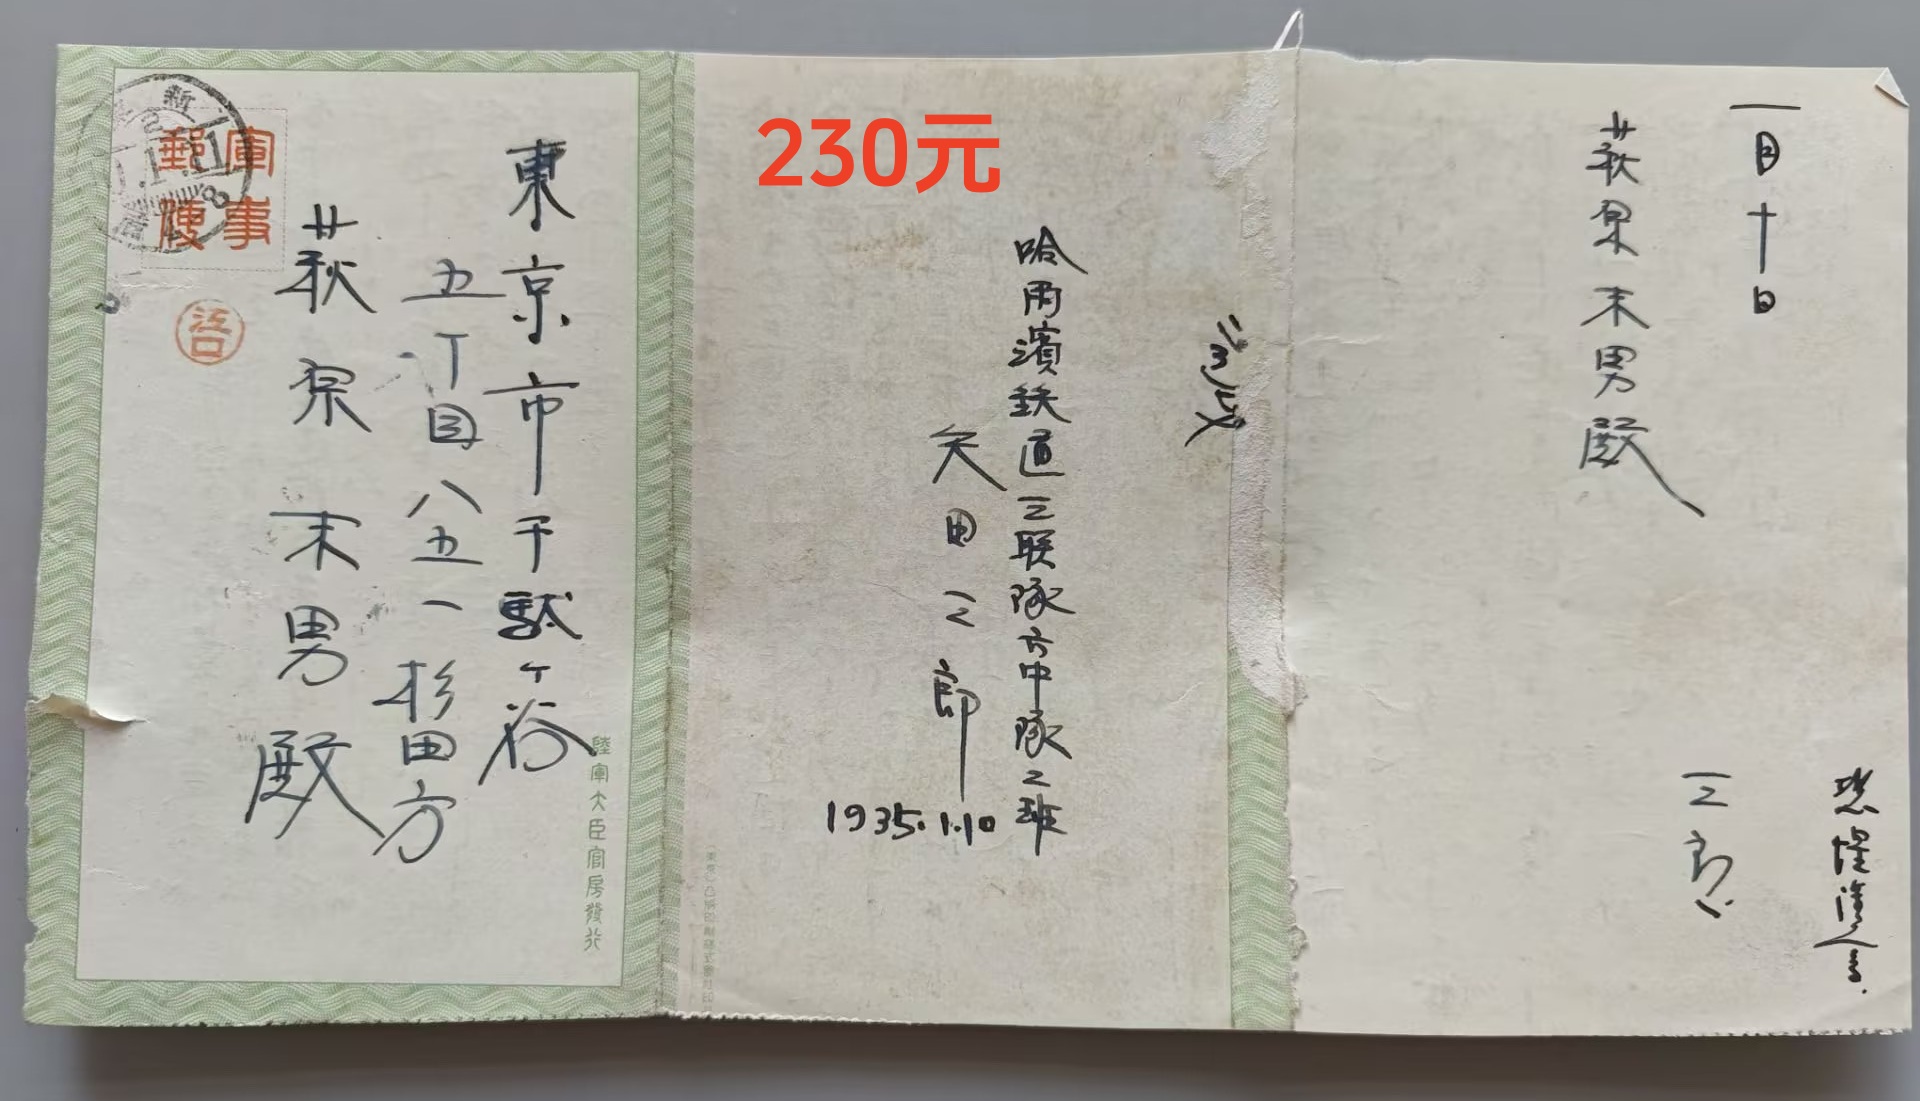 230元
軍事
郵便
東京市千駄ヶ谷
五丁目八五一杉田方
萩原末男殿
陸軍大臣官房發行
哈尔濱鉄道三联隊六中隊二班
矢田三郎
1935.1.10
一月十日
三郎
萩原末男殿